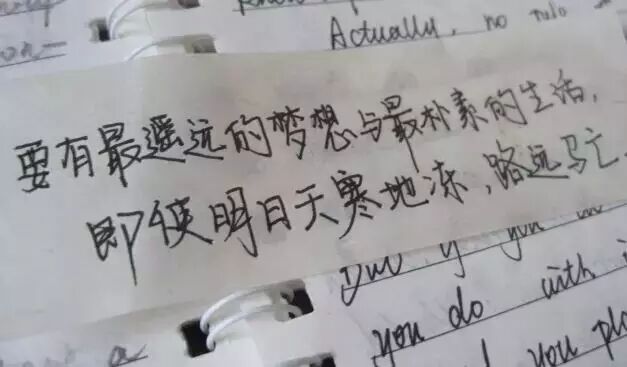 Actually, no
要有最遥远的梦想与最朴素的生活,
即使明日天寒地冻,路远马亡.
you do with
a
you